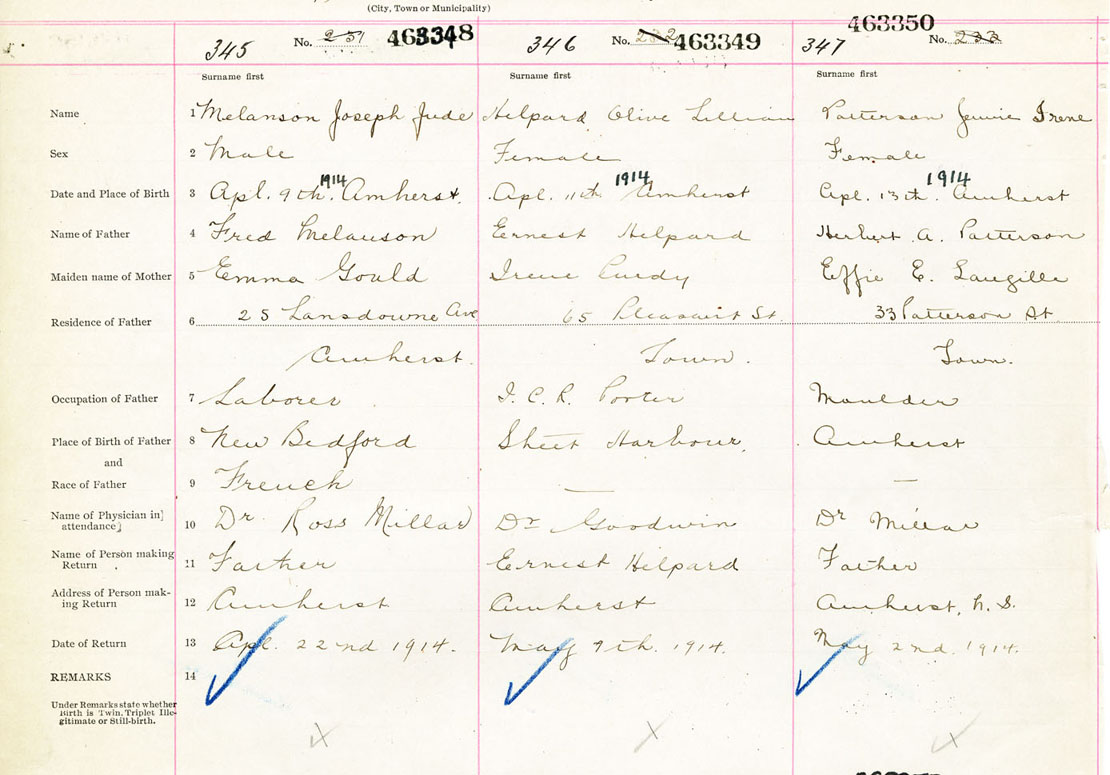 (City, Town or Municipality)
345 No. 231 463348 346 No. 232 463349 347 463350 No. 233
Surname first Surname first Surname first
Name 1 Melanson Joseph Jude Helpard Olive Lillian Patterson Jennie Irene
Sex 2 Male Female Female
Date and Place of Birth 3 Apl. 9th 1914 Amherst. Apl. 11th 1914 Amherst Apl. 13th. 1914 Amherst
Name of Father 4 Fred Melanson Ernest Helpard Herbert A. Patterson
Maiden name of Mother 5 Emma Gould Irene Purdy Effie E. Langille
Residence of Father 6 25 Lansdowne Ave 65 Pleasant St. 33 Patterson St.
Amherst. Town. Town.
Occupation of Father 7 Laborer I. C. R. Porter Moulder
Place of Birth of Father 8 New Bedford Sheet Harbour. Amherst
and
Race of Father 9 French — —
Name of Physician in}
attendance} 10 Dr. Ross Millar Dr Goodwin Dr Millar
Name of Person making
Return 11 Father Ernest Helpard Father
Address of Person mak-
ing Return 12 Amherst Amherst Amherst, N. S.
Date of Return 13 Apl. 22nd 1914. May 9th. 1914. May 2nd. 1914.
REMARKS 14
Under Remarks state whether
Birth is Twin, Triplet Ille-
gitimate or Still-birth.